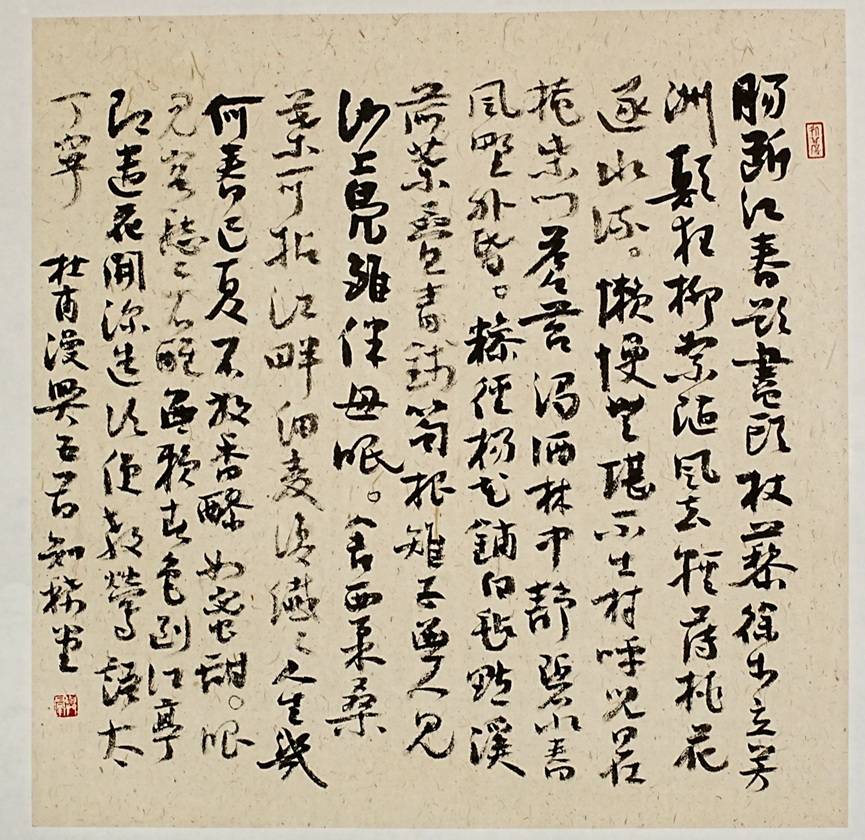 腸斷江春欲盡頭杖藜徐步立芳
洲顛狂柳絮随風去輕薄桃花
逐水流。懶慢無堪不出村呼兒日在
掩柴門蒼苔濁酒林中靜碧水春
風野外昏。糝徑楊花鋪白氈點溪
荷葉疊青錢筍根雉子無人見
沙上鳧雛伴母眠。舍西柔桑
葉可拈江畔細麥復纖々人生幾
何春已夏不放香醪如蜜甜。眼
見客愁々不醒無賴春色到江亭
即遣花開深造次便教鶯語太
丁寧 杜甫漫興五首 知堂